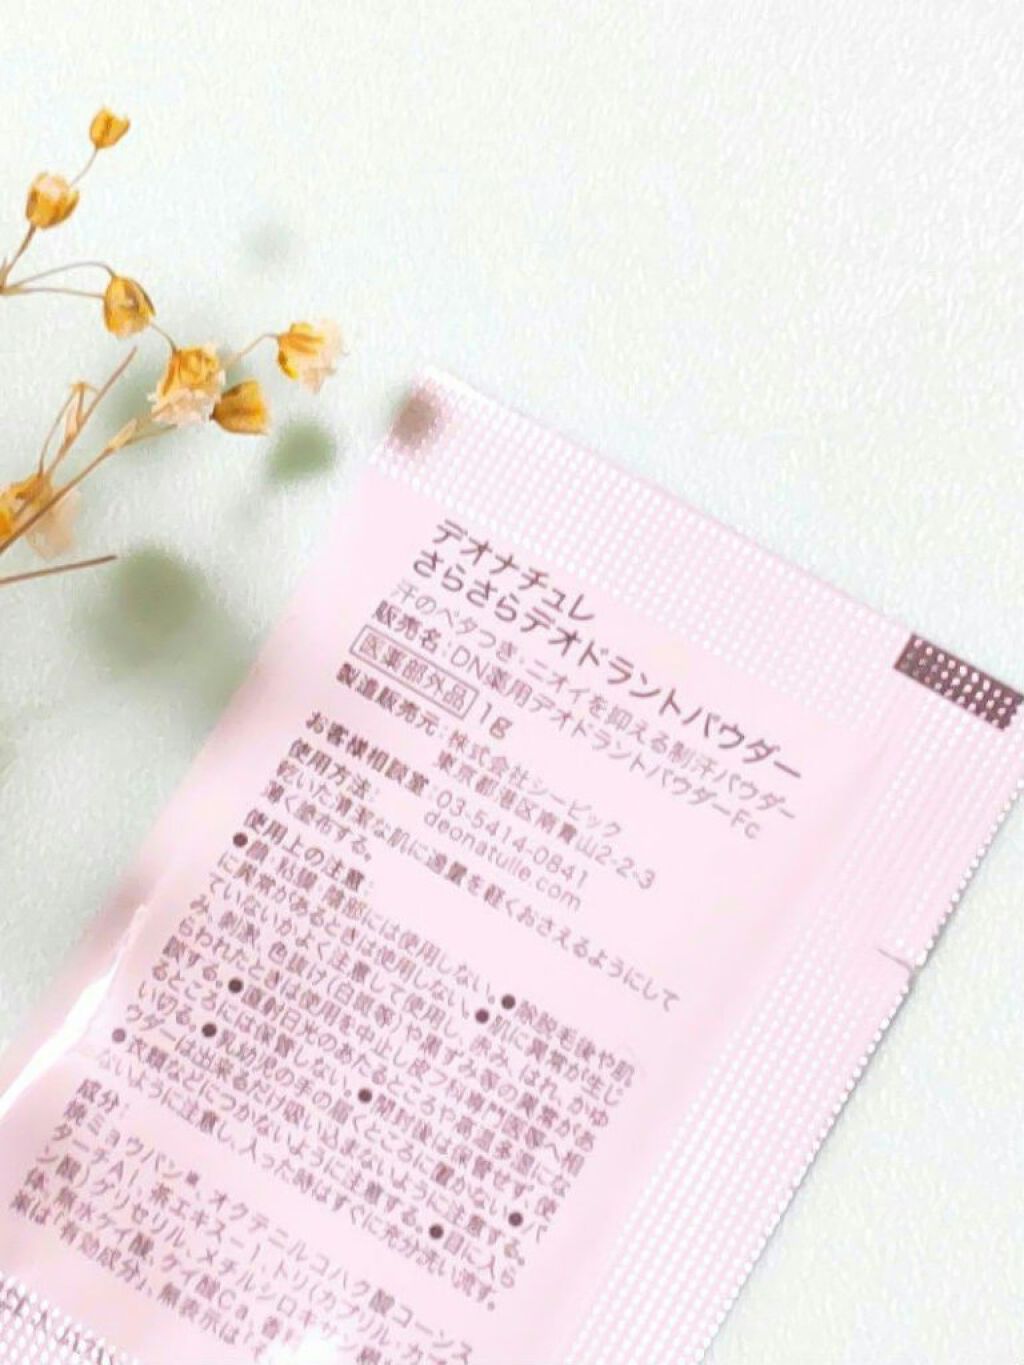 デオナチュレ
さらさらデオドラントパウダー
汗のベタつき・ニオイを抑える制汗パウダー
販売名:DN薬用デオドラントパウダーFc
医薬部外品 1g
製造販売元:株式会社シービック
東京都港区南青山2-2-3
お客様相談室:03-5414-0841
deonatulle.com
使用方法:
乾いた清潔な肌に適量を軽くおさえるようにして
薄く塗布する。
使用上の注意:
●顔・粘膜・陰部には使用しない。●除脱毛後や肌
に異常があるときは使用しない。●肌に異常が生じ
ていないかよく注意して使用し、赤み、はれ、かゆ
み、刺激、色抜け(白斑等)や黒ずみ等の異常があ
らわれたときは使用を中止し皮フ科専門医等へ相
談する。●直射日光のあたるところや高温多湿にな
るところには保管しない。●開封後は保管せず、使
い切る。●乳幼児の手の届くところに置かない。●パ
ウダーは出来るだけ吸い込まないように注意する。
●衣類などにつかないように注意する。●目に入ら
ないように注意し、入った時はすぐに充分洗い流す。
成分:
焼ミョウバン*、オクテニルコハク酸コーンス
ターチAl、茶エキス-1、トリ(カプリル・カプ
ン酸)グリセリル、メチルシロキサン
体、無水ケイ酸、ケイ酸Ca、香料
*は「有効成分」、無表示は「